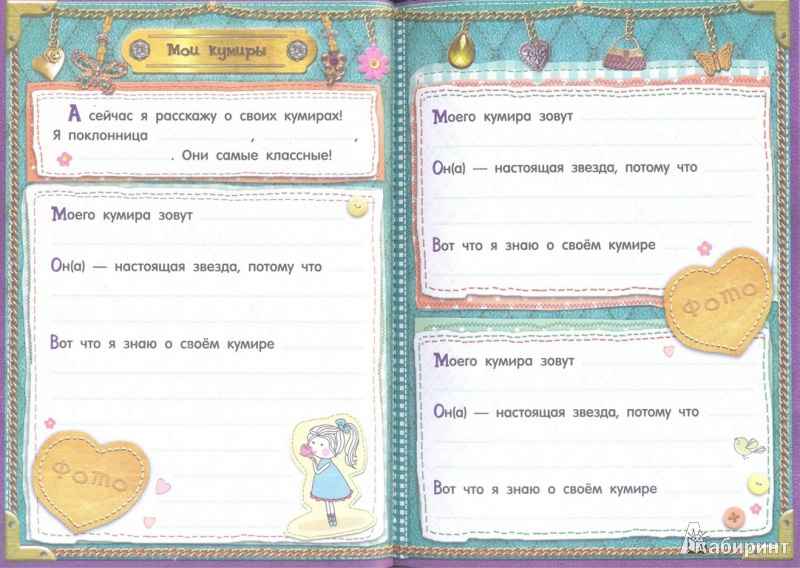 Мои кумиры
А сейчас я расскажу о своих кумирах!
Я поклонница , ,
. Они самые классные!
Моего кумира зовут
Он(а) — настоящая звезда, потому что
Вот что я знаю о своём кумире
Фото
Моего кумира зовут
Он(а) — настоящая звезда, потому что
Вот что я знаю о своём кумире
Фото
Моего кумира зовут
Он(а) — настоящая звезда, потому что
Вот что я знаю о своём кумире
Лабиринт